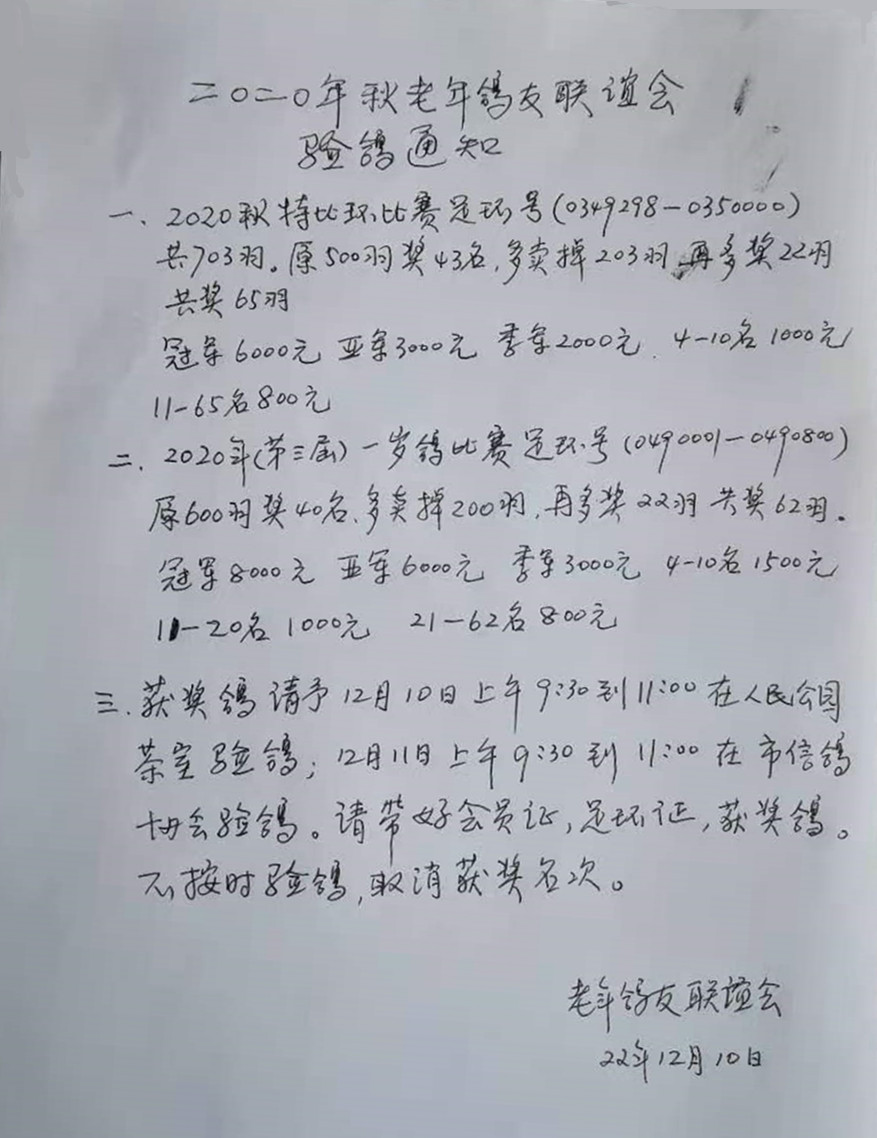 二〇二〇年秋老年鸽友联谊会
验鸽通知
一、2020秋特比环比赛足环号(0349298-0350000)
共703羽。原500羽奖43名,多卖掉203羽 再多奖22羽
共奖65羽
冠军6000元 亚军3000元 季军2000元. 4-10名1000元
11-65名800元
二、2020年(第三届)一岁鸽比赛足环号(0490001-0490800)
原600羽奖40名,多卖掉200羽,再多奖22羽 共奖62羽。
冠军8000元 亚军6000元 季军3000元 4-10名1500元
11-20名1000元 21-62名800元
三.获奖鸽请予12月10日上午9:30到11:00在人民公园
茶室验鸽;12月11日上午9:30到11:00在市信鸽
协会验鸽。请带好会员证,足环证,获奖鸽。
不按时验鸽,取消获奖名次。
老年鸽友联谊会
22年12月10日